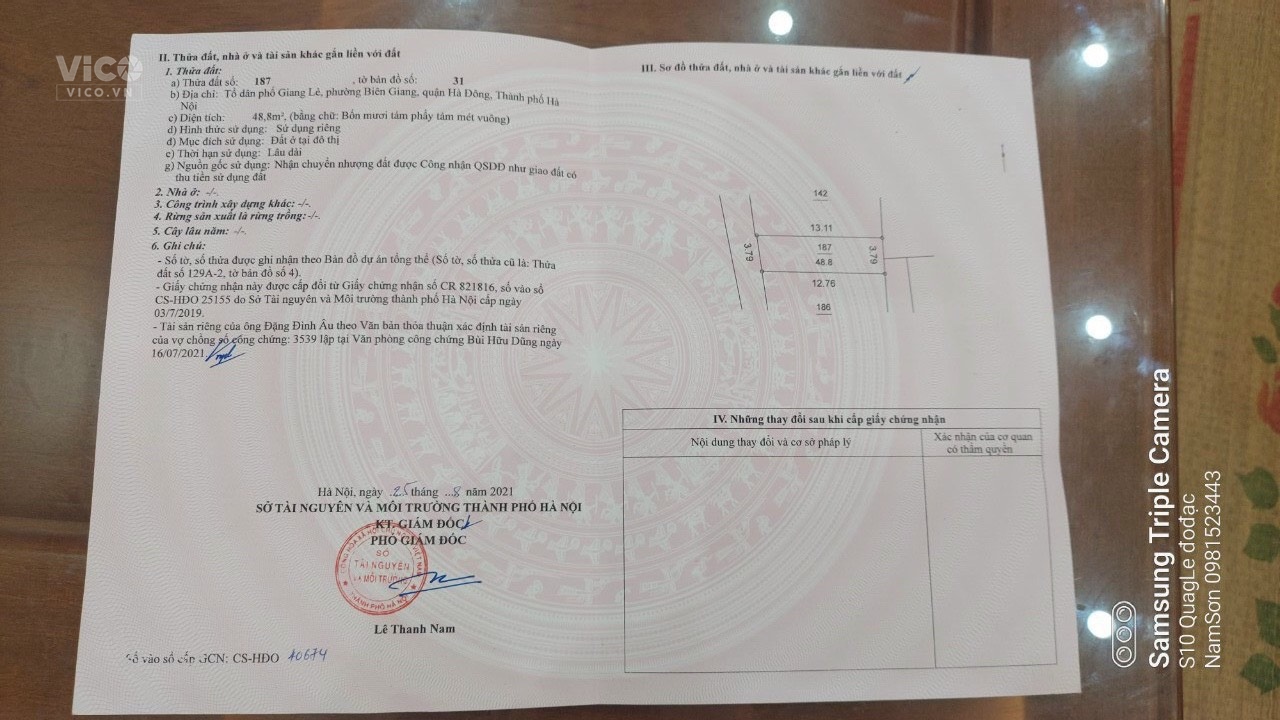 VICO
VICO.VN
II. Thửa đất, nhà ở và tài sản khác gắn liền với đất
1. Thửa đất:
a) Thửa đất số: 187 , tờ bản đồ số: 31
b) Địa chỉ: Tổ dân phố Giang Lẻ, phường Biên Giang, quận Hà Đông, Thành phố Hà
Nội
c) Diện tích: 48,8m², (bằng chữ: Bốn mươi tám phẩy tám mét vuông)
d) Hình thức sử dụng: Sử dụng riêng
đ) Mục đích sử dụng: Đất ở tại đô thị
e) Thời hạn sử dụng: Lâu dài
g) Nguồn gốc sử dụng: Nhận chuyển nhượng đất được Công nhận QSDĐ như giao đất có
thu tiền sử dụng đất
2. Nhà ở: -/-.
3. Công trình xây dựng khác: -/-.
4. Rừng sản xuất là rừng trồng: -/-.
5. Cây lâu năm: -/-.
6. Ghi chú:
- Số tờ, số thửa được ghi nhận theo Bản đồ dự án tổng thể (Số tờ, số thửa cũ là: Thửa
đất số 129A-2, tờ bản đồ số 4).
- Giấy chứng nhận này được cấp đổi từ Giấy chứng nhận số CR 821816, số vào sổ
CS-HĐO 25155 do Sở Tài nguyên và Môi trường thành phố Hà Nội cấp ngày
03/7/2019.
- Tài sản riêng của ông Đặng Đình Âu theo Văn bản thỏa thuận xác định tài sản riêng
của vợ chồng số công chứng: 3539 lập tại Văn phòng công chứng Bùi Hữu Dũng ngày
16/07/2021.
Hà Nội, ngày 25 tháng 8 năm 2021
SỞ TÀI NGUYÊN VÀ MÔI TRƯỜNG THÀNH PHỐ HÀ NỘI
KT. GIÁM ĐỐC
PHÓ GIÁM ĐỐC
CỘNG HÒA XÃ HỘI CHỦ NGHĨA VIỆT NAM
SỞ
TÀI NGUYÊN
VÀ MÔI TRƯỜNG
THÀNH PHỐ HÀ NỘI
Lê Thanh Nam
Số vào sổ cấp GCN: CS-HĐO 40674
III. Sơ đồ thửa đất, nhà ở và tài sản khác gắn liền với đất
142
13.11
3.79
187
48.8
3.79
12.76
186
IV. Những thay đổi sau khi cấp giấy chứng nhận
Nội dung thay đổi và cơ sở pháp lý
Xác nhận của cơ quan
có thẩm quyền
Samsung Triple Camera
S10 QuagLe đođạc
NamSơn 0981523443